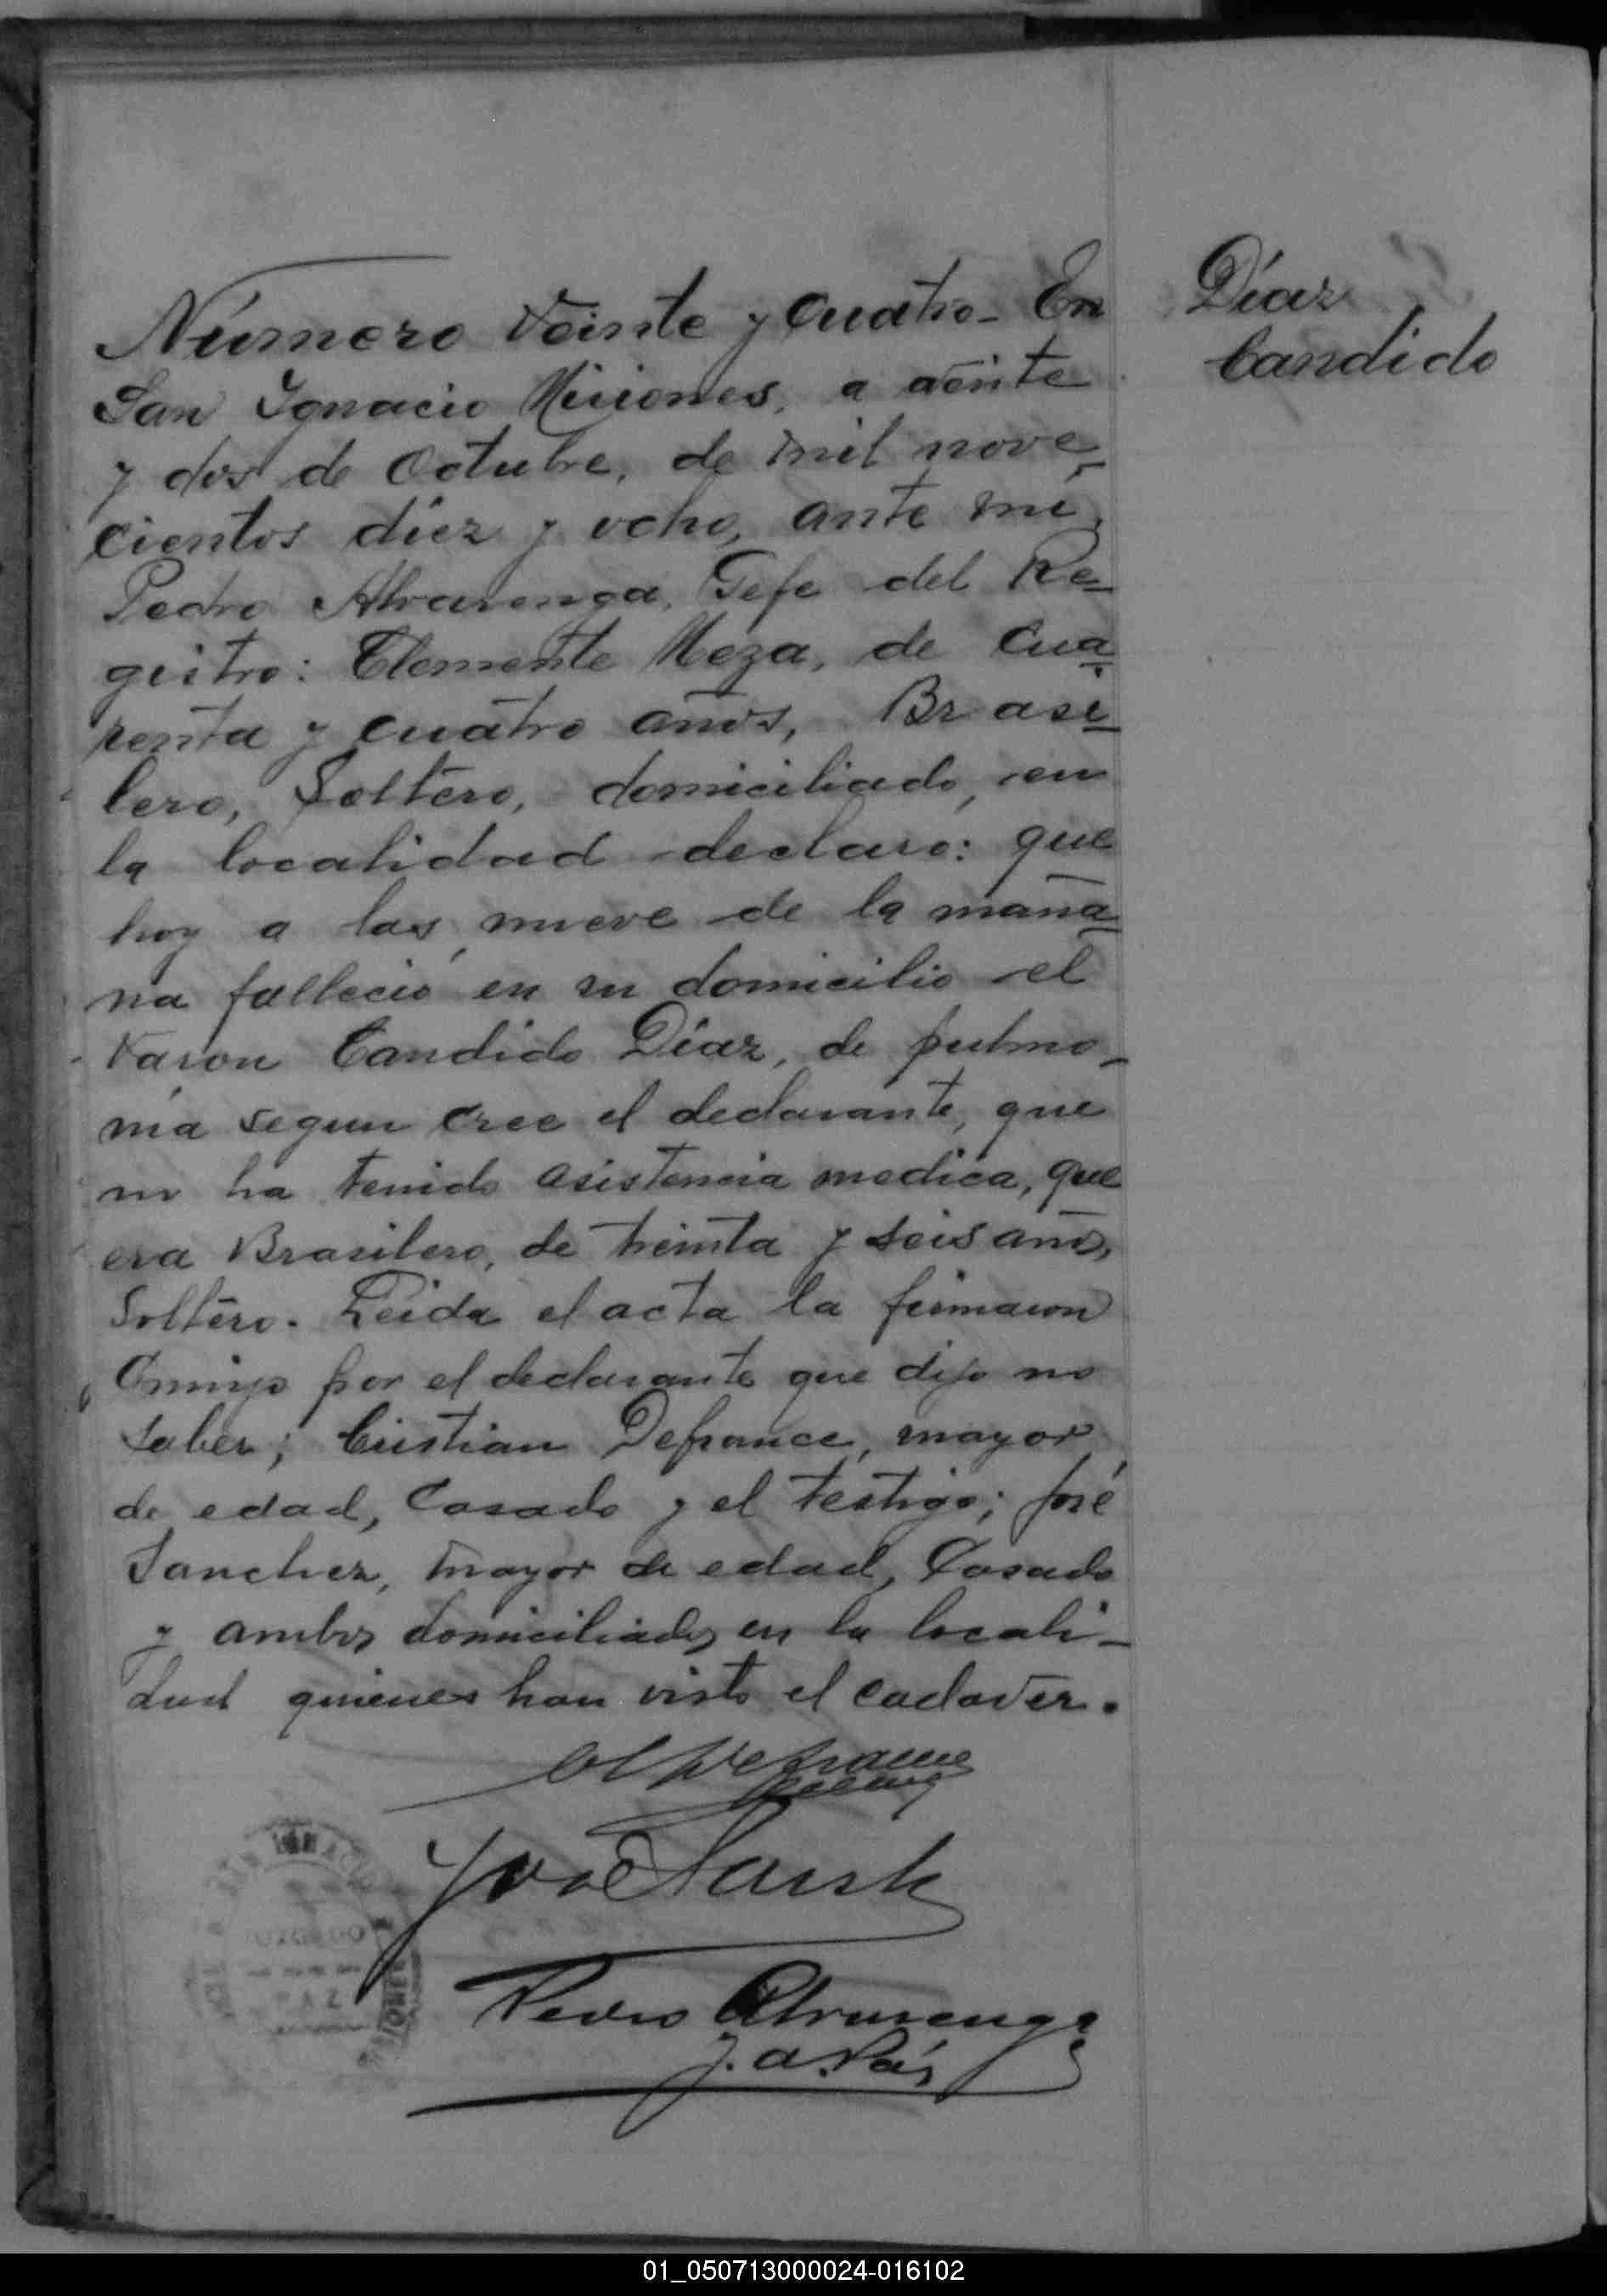 Número Veinte y Cuatro - En
San Ignacio Misiones, a veinte
y dos de Octubre, de mil nove-
cientos diez y ocho, ante mi,
Pedro Alvarenga, Gefe del Re-
gistro: Clemente Meza, de Cua-
renta y cuatro años, Brasi-
lero, Soltero, domiciliado, en
la localidad declaro: que
hoy a las nueve de la maña-
na falleció en su domicilio el
Varon Candido Díaz, de pulmo-
nia segun cree el declarante, que
no ha tenido asistencia medica, que
era Brasilero, de treinta y seis años,
Soltero. Leida el acta la firmaron
Cmmigo por el declarante que dijo no
saber; Cristian Defrance, mayor
de edad, Casado y el testigo; José
Sanchez, mayor de edad, Casado
y ambos domiciliados en la locali-
dad quienes han visto el cadaver.
Díaz
Candido
Defrance
José Sanch
Pedro Alvarenga
J. a Pas
SAN IGNACIO
JUZGADO
PAZ
MISIONES
01_050713000024-016102